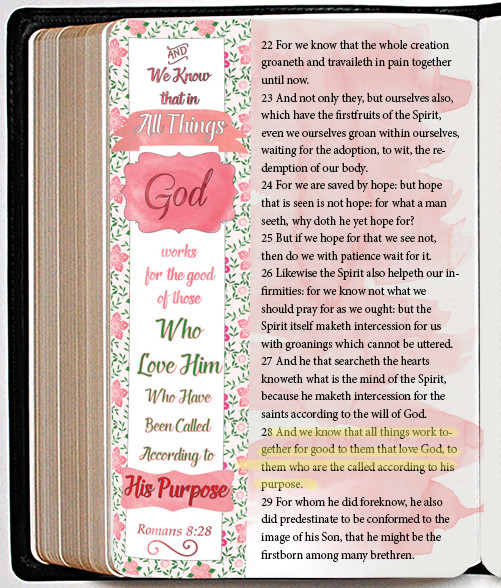 AND
We Know
that in
All Things
God
works
for the good
of those
Who
Love Him
Who Have
Been Called
According to
His Purpose
Romans 8:28
22 For we know that the whole creation
groaneth and travaileth in pain together
until now.
23 And not only they, but ourselves also,
which have the firstfruits of the Spirit,
even we ourselves groan within ourselves,
waiting for the adoption, to wit, the re-
demption of our body.
24 For we are saved by hope: but hope
that is seen is not hope: for what a man
seeth, why doth he yet hope for?
25 But if we hope for that we see not,
then do we with patience wait for it.
26 Likewise the Spirit also helpeth our in-
firmities: for we know not what we
should pray for as we ought: but the
Spirit itself maketh intercession for us
with groanings which cannot be uttered.
27 And he that searcheth the hearts
knoweth what is the mind of the Spirit,
because he maketh intercession for the
saints according to the will of God.
28 And we know that all things work to-
gether for good to them that love God, to
them who are the called according to his
purpose.
29 For whom he did foreknow, he also
did predestinate to be conformed to the
image of his Son, that he might be the
firstborn among many brethren.